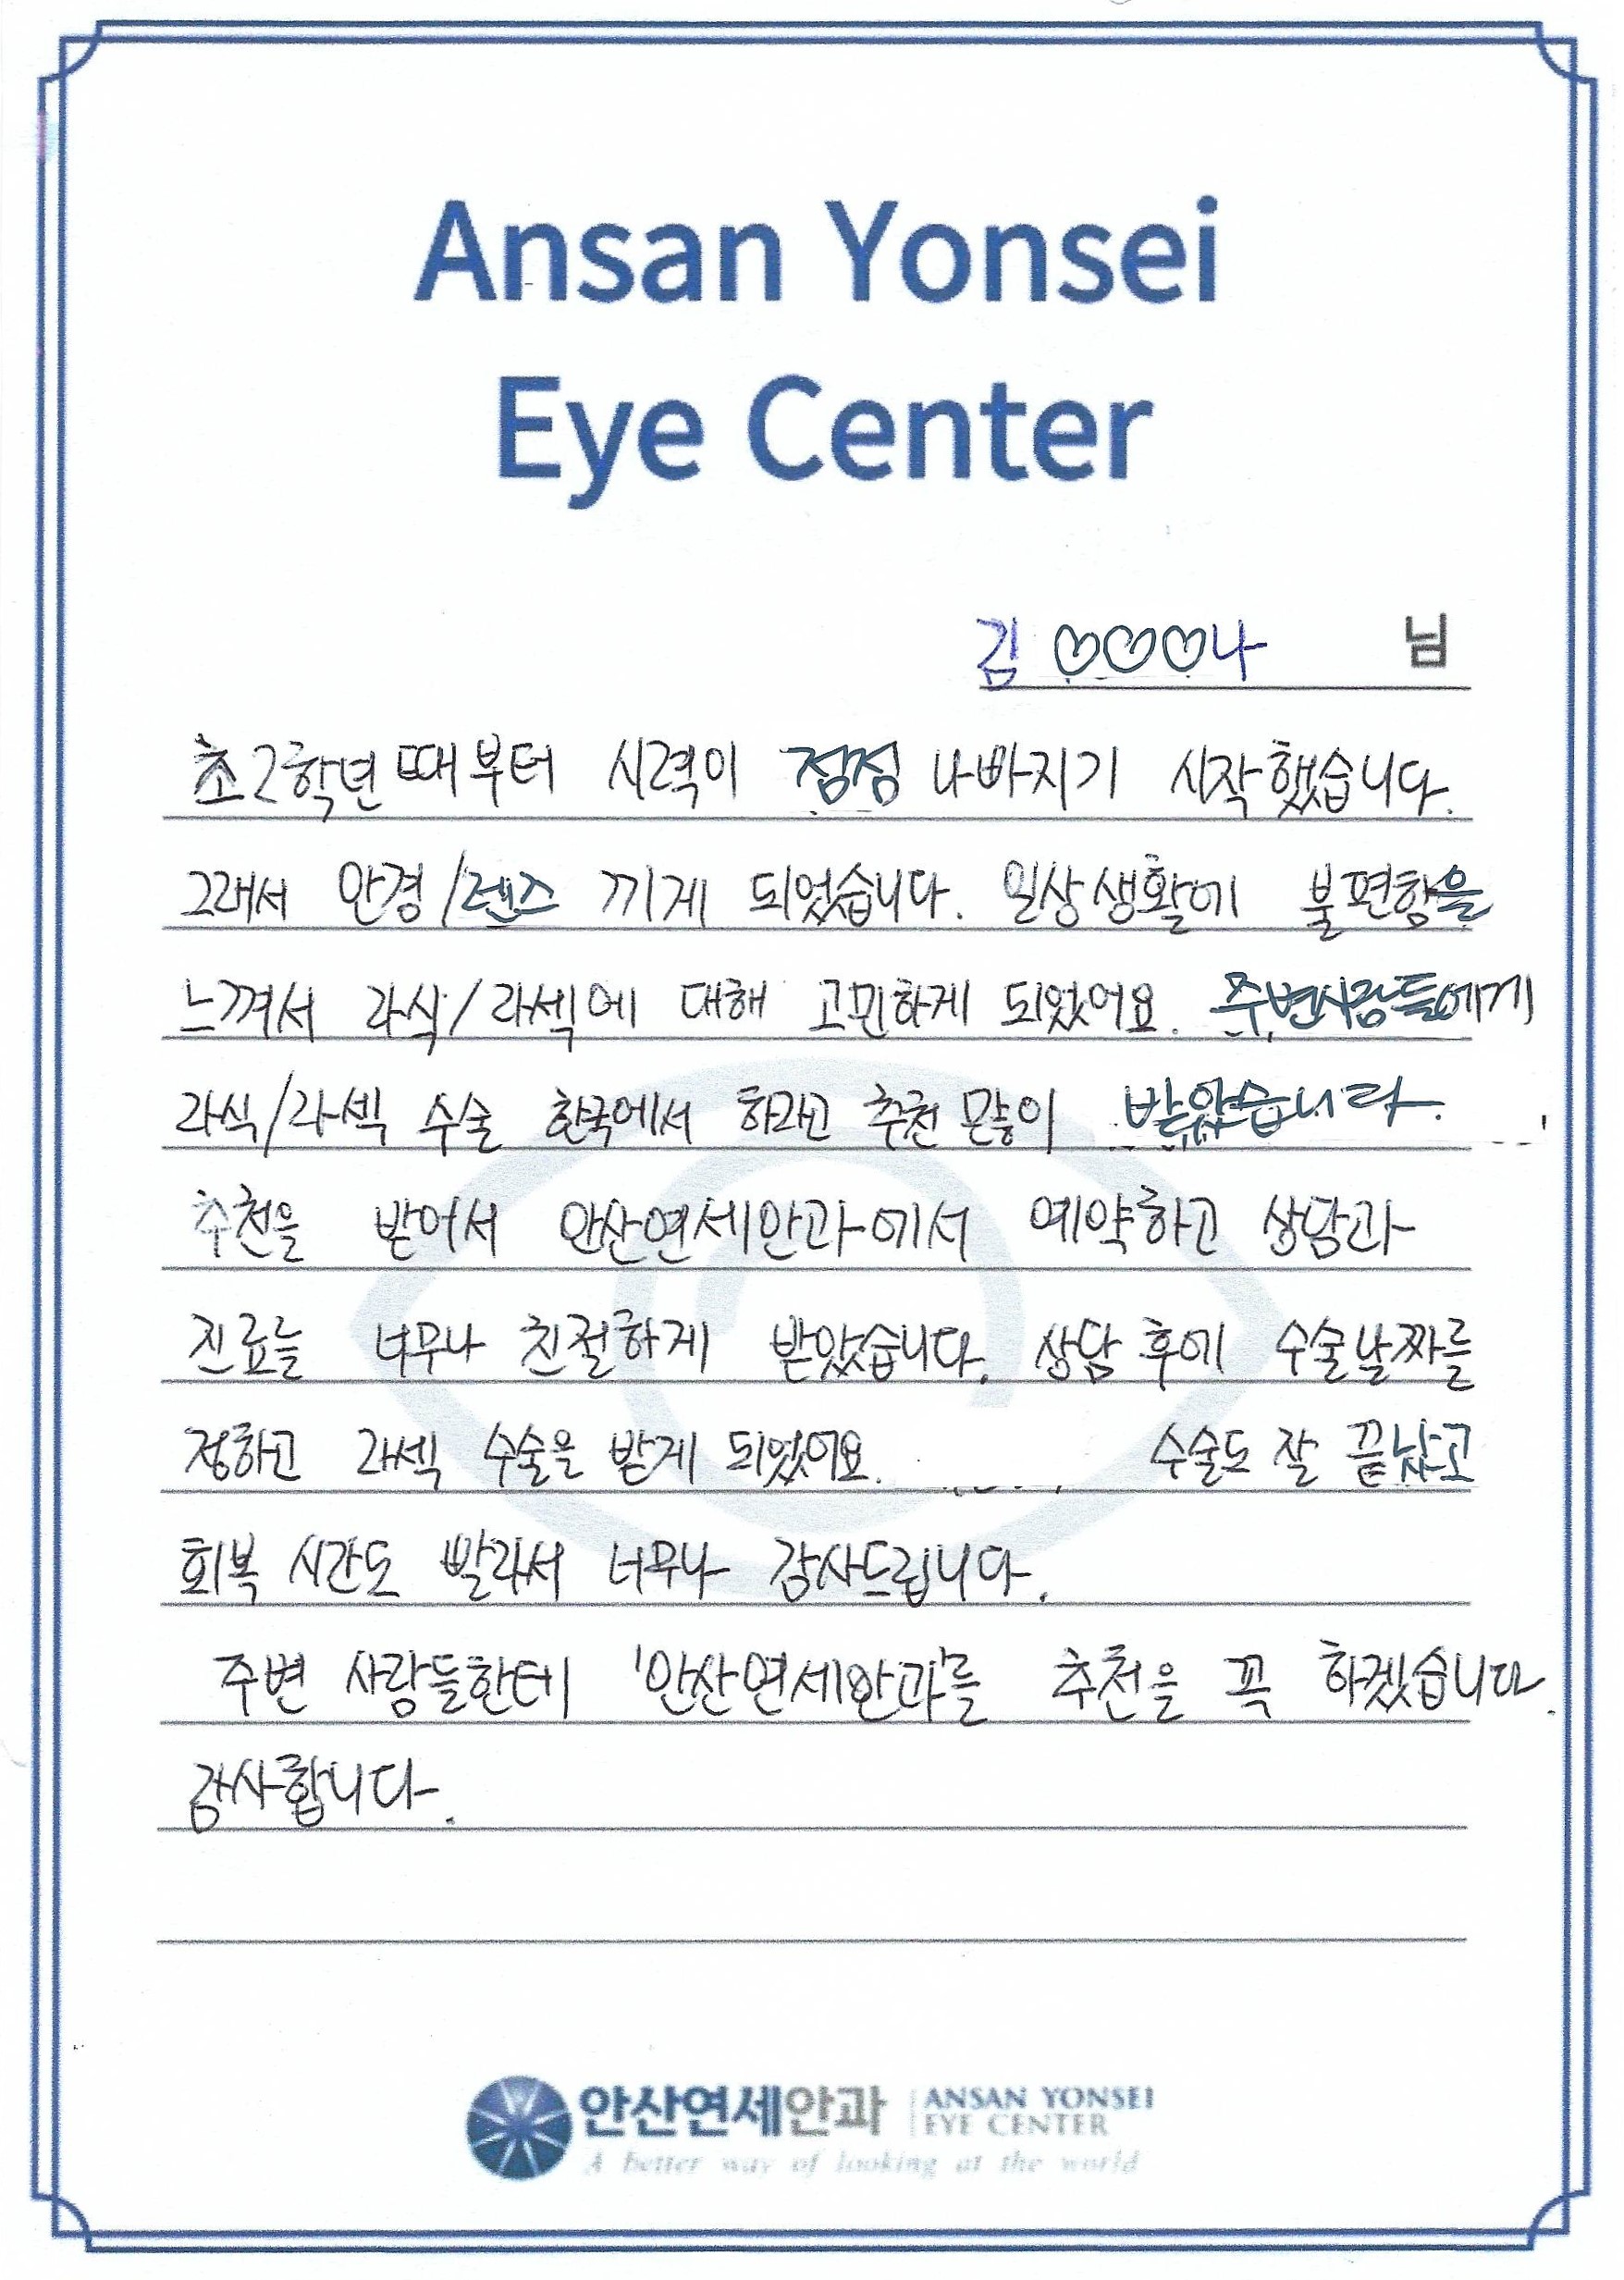 Ansan Yonsei
Eye Center
김 ♡♡♡나 님
초2학년 때부터 시력이 점점 나빠지기 시작했습니다.
그래서 안경/렌즈 끼게 되었습니다. 일상생활에 불편함을
느껴서 라식/라섹에 대해 고민하게 되었어요. 주변사람들에게
라식/라섹 수술 한국에서 하라고 추천 많이 받았습니다.
추천을 받어서 안산연세안과에서 예약하고 상담과
진료늘 너무나 친절하게 받았습니다. 상담 후에 수술날짜를
정하고 라섹 수술을 받게 되었어요. 수술도 잘 끝났고
회복 시간도 빨라서 너무나 감사드립니다.
주변 사람들한테 '안산연세안과'를 추천을 꼭 하겠습니다.
감사합니다.
안산연세안과 ANSAN YONSEI
EYE CENTER
A better way of looking at the world